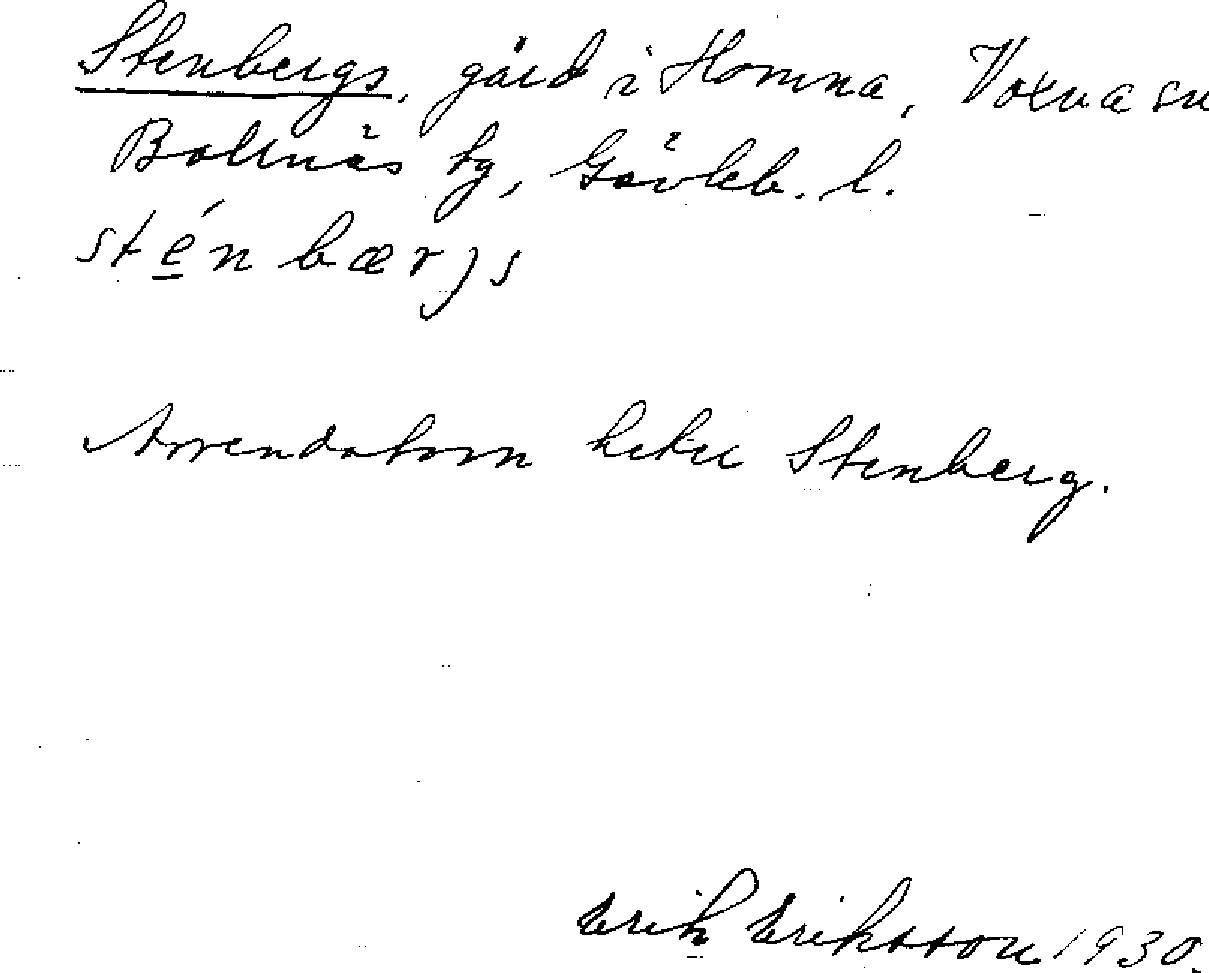 Stenbergs, gård i Homna, Voxna sn
Bollnäs tg, Gävleb. l.
sténbærjs
Arrendatorn heter Stenberg.
Erik Eriksson 1930.